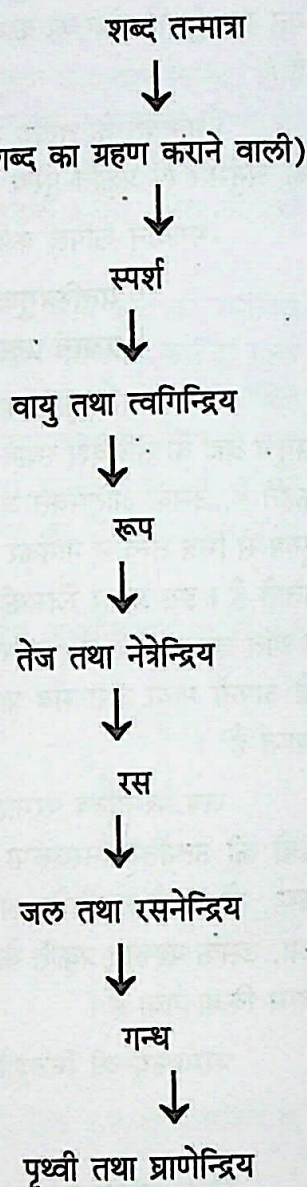 शब्द तन्मात्रा
↓
का ग्रहण कराने वाली)
↓
स्पर्श
↓
वायु तथा त्वगिन्द्रिय
↓
रूप
↓
तेज तथा नेत्रेन्द्रिय
↓
रस
↓
जल तथा रसनेन्द्रिय
↓
गन्ध
↓
पृथ्वी तथा घ्राणेन्द्रिय